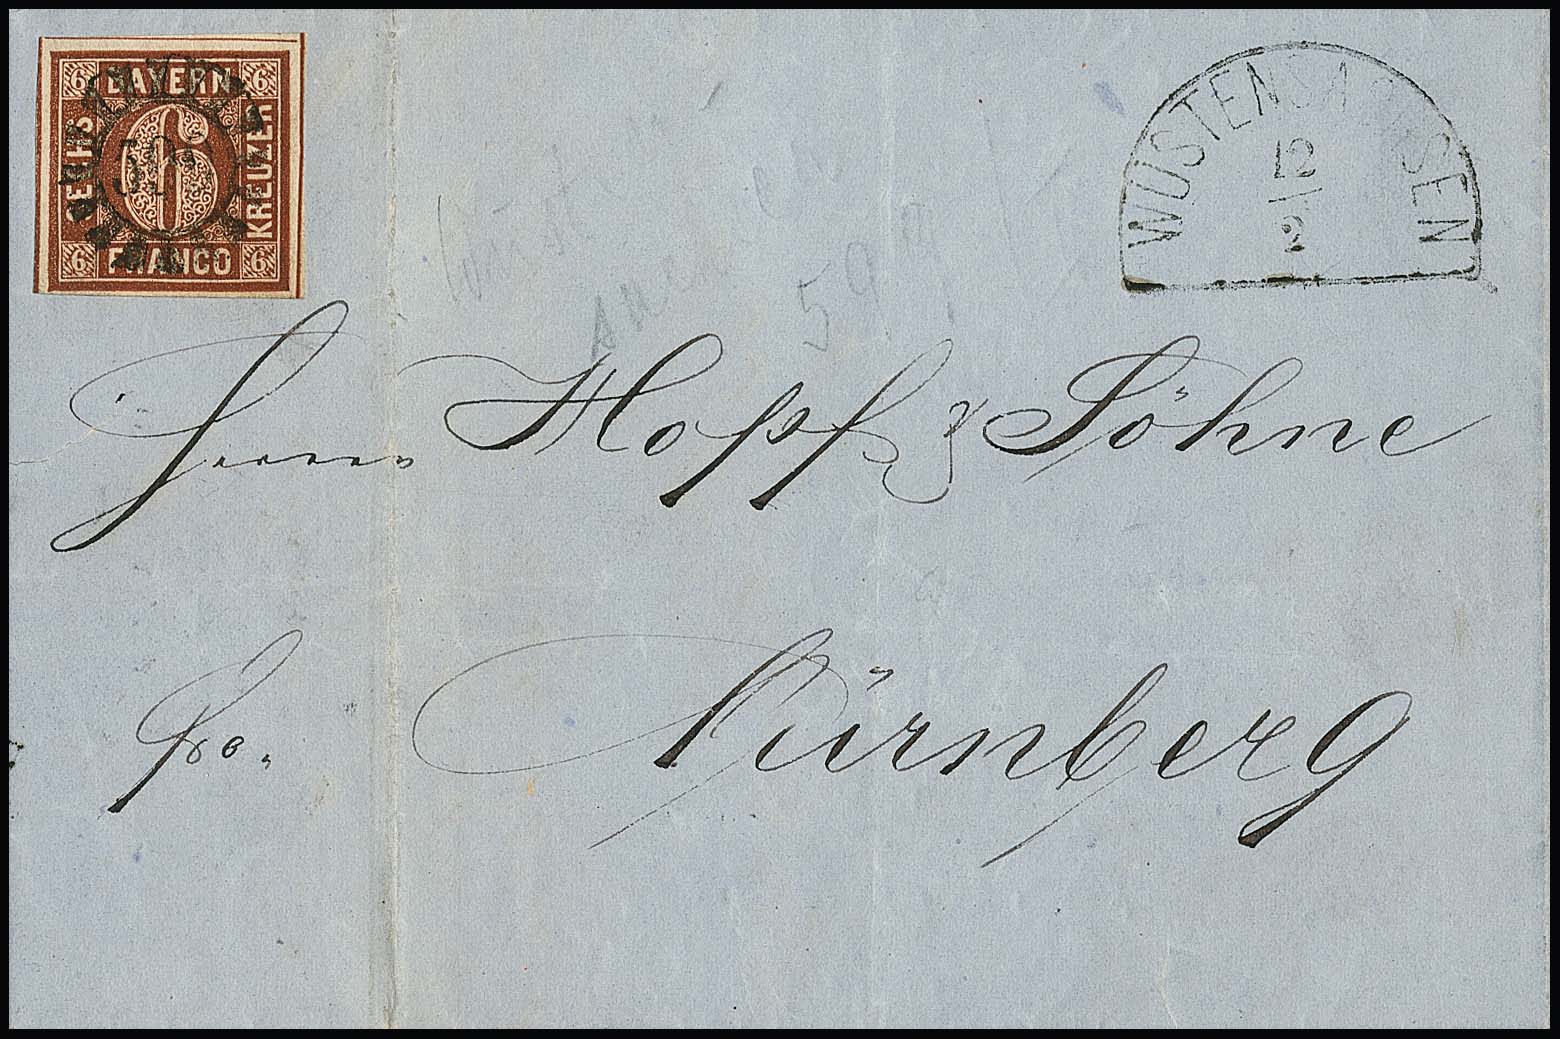 6 BAYERN 6
SECHS
KREUZER
6
6 FRANCO 6
WÜSTENSACHSEN
12
2
599
Herren Hopf & Söhne
Nürnberg